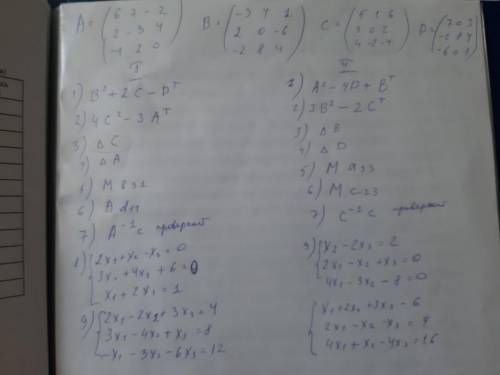 A = (6 7 -2; 2 -3 4; -1 2 0) B = (-3 4 1; 2 0 -6; -2 8 4) C = (5 1 6; 3 0 2; 4 -2 -1) D = (7 0 3; -2 8 4; -6 0 1)
I
1) B² + 2C - Dᵀ
2) 4C² - 3Aᵀ
3) Δ C
4) Δ A
5) M
6) A d₁₁
7) A⁻¹ с проверкой
8) { 2x₁ + x₂ - x₃ = 0
3x₁ + 4x₂ + 6 = 0
x₁ + 2x₃ = 1
9) { 2x₁ - 2x₂ + 3x₃ = 4
3x₁ - 4x₂ + x₃ = 8
-x₁ - 3x₂ - 6x₃ = 12
II
1) A² - 4D + Bᵀ
2) 3B² - 2Cᵀ
3) Δ B
4) Δ D
5) M a₃₃
6) M c₂₃
7) C⁻¹ с проверкой
{ x₂ - 2x₃ = 2
2x₁ - x₂ + x₃ = 0
4x₁ - 3x₂ - 8 = 0
{ x₁ + 2x₂ + 3x₃ - 6
2x₁ - x₂ - x₃ =
4x₁ + x₂ - 4x₃ = 16